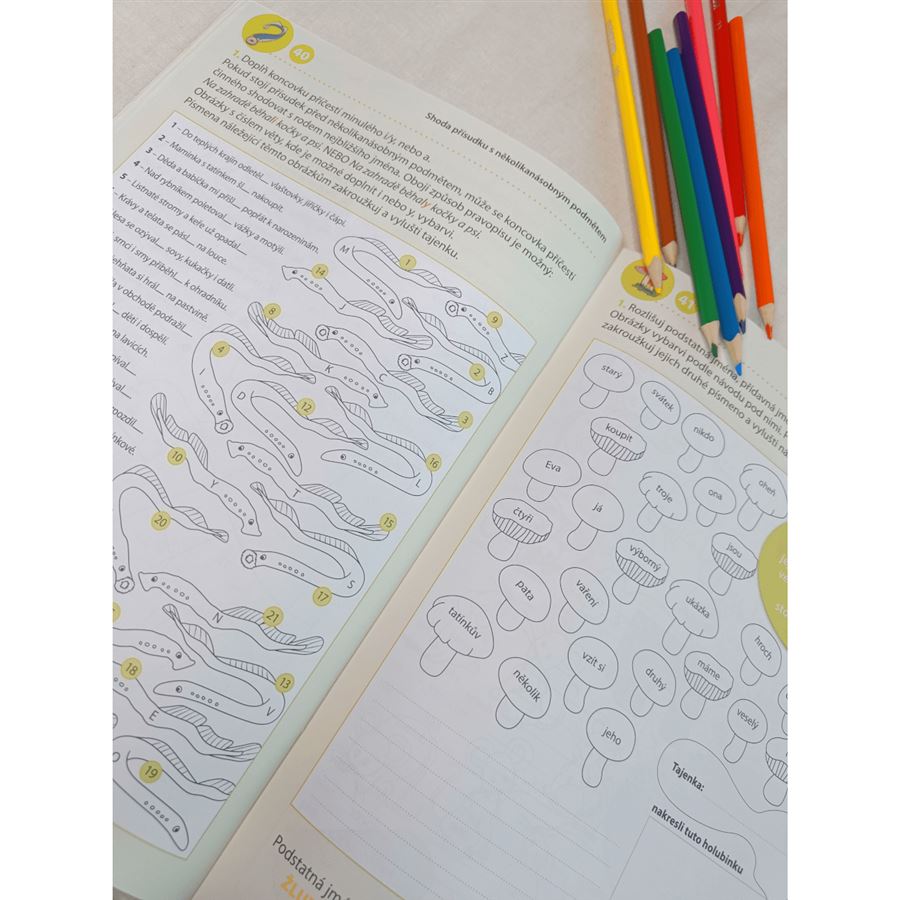 40
Shoda přísudku s několikanásobným podmětem
1. Doplň koncovku příčestí minulého i/y, nebo a.
Pokud stojí přísudek před několikanásobným podmětem, může se koncovka příčestí
činného shodovat s rodem nejbližšího jména. Obojí způsob pravopisu je možný:
Na zahradě běhali kočky a psi. NEBO Na zahradě běhaly kočky a psi.
Obrázky s číslem věty, kde je možné doplnit i nebo y, vybarvi.
Písmena náležející těmto obrázkům zakroužkuj a vylušti tajenku.
1 – Do teplých krajin odletěl__ vlaštovky, jiřičky i čápi.
2 – Maminka s tatínkem šl__ nakoupit.
3 – Děda a babička mi přišl__ popřát k narozeninám.
4 – Nad rybníkem poletoval__ vážky a motýli.
5 – Listnaté stromy a keře už opadal__.
Krávy a telata se pásl__ na louce.
lesa se ozýval__ sovy, kukačky i datli.
smci i srny příběhl__ k ohradníku.
ehňata si hrál__ na pastvině.
v obchodě podražil__
děti i dospělí.
na lavicích.
ýval__
val__
ozdil.
nkové.
M
1
14
J
9
Z
8
K
C
2
B
4
I
D
12
3
16
L
10
Y
T
15
20
S
17
N
21
13
V
18
E
O
19
41
1. Rozlišuj podstatná jména, přídavná jmé
Obrázky vybarvi podle návodu pod nimi. P
zakroužkuj jejich druhé písmeno a vylušti ná
starý
svátek
nikdo
koupit
Eva
troje
ona
oheň
já
čtyři
výborný
jsou
pata
vaření
ukázka
tatínkův
hroch
vzít si
několik
druhý
máme
veselý
jeho
je
sto
Tajenka:
nakresli tuto holubinku
Podstatná jmé
ŽLU